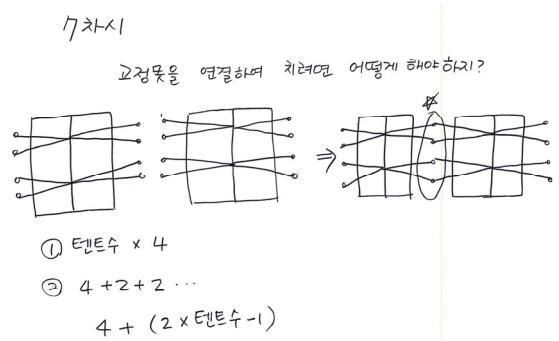 7차시
고정못을 연결하여 치려면 어떻게 해야하지?
☆
⇒
① 텐트수 × 4
② 4+2+2 …
4 + (2×텐트수-1)